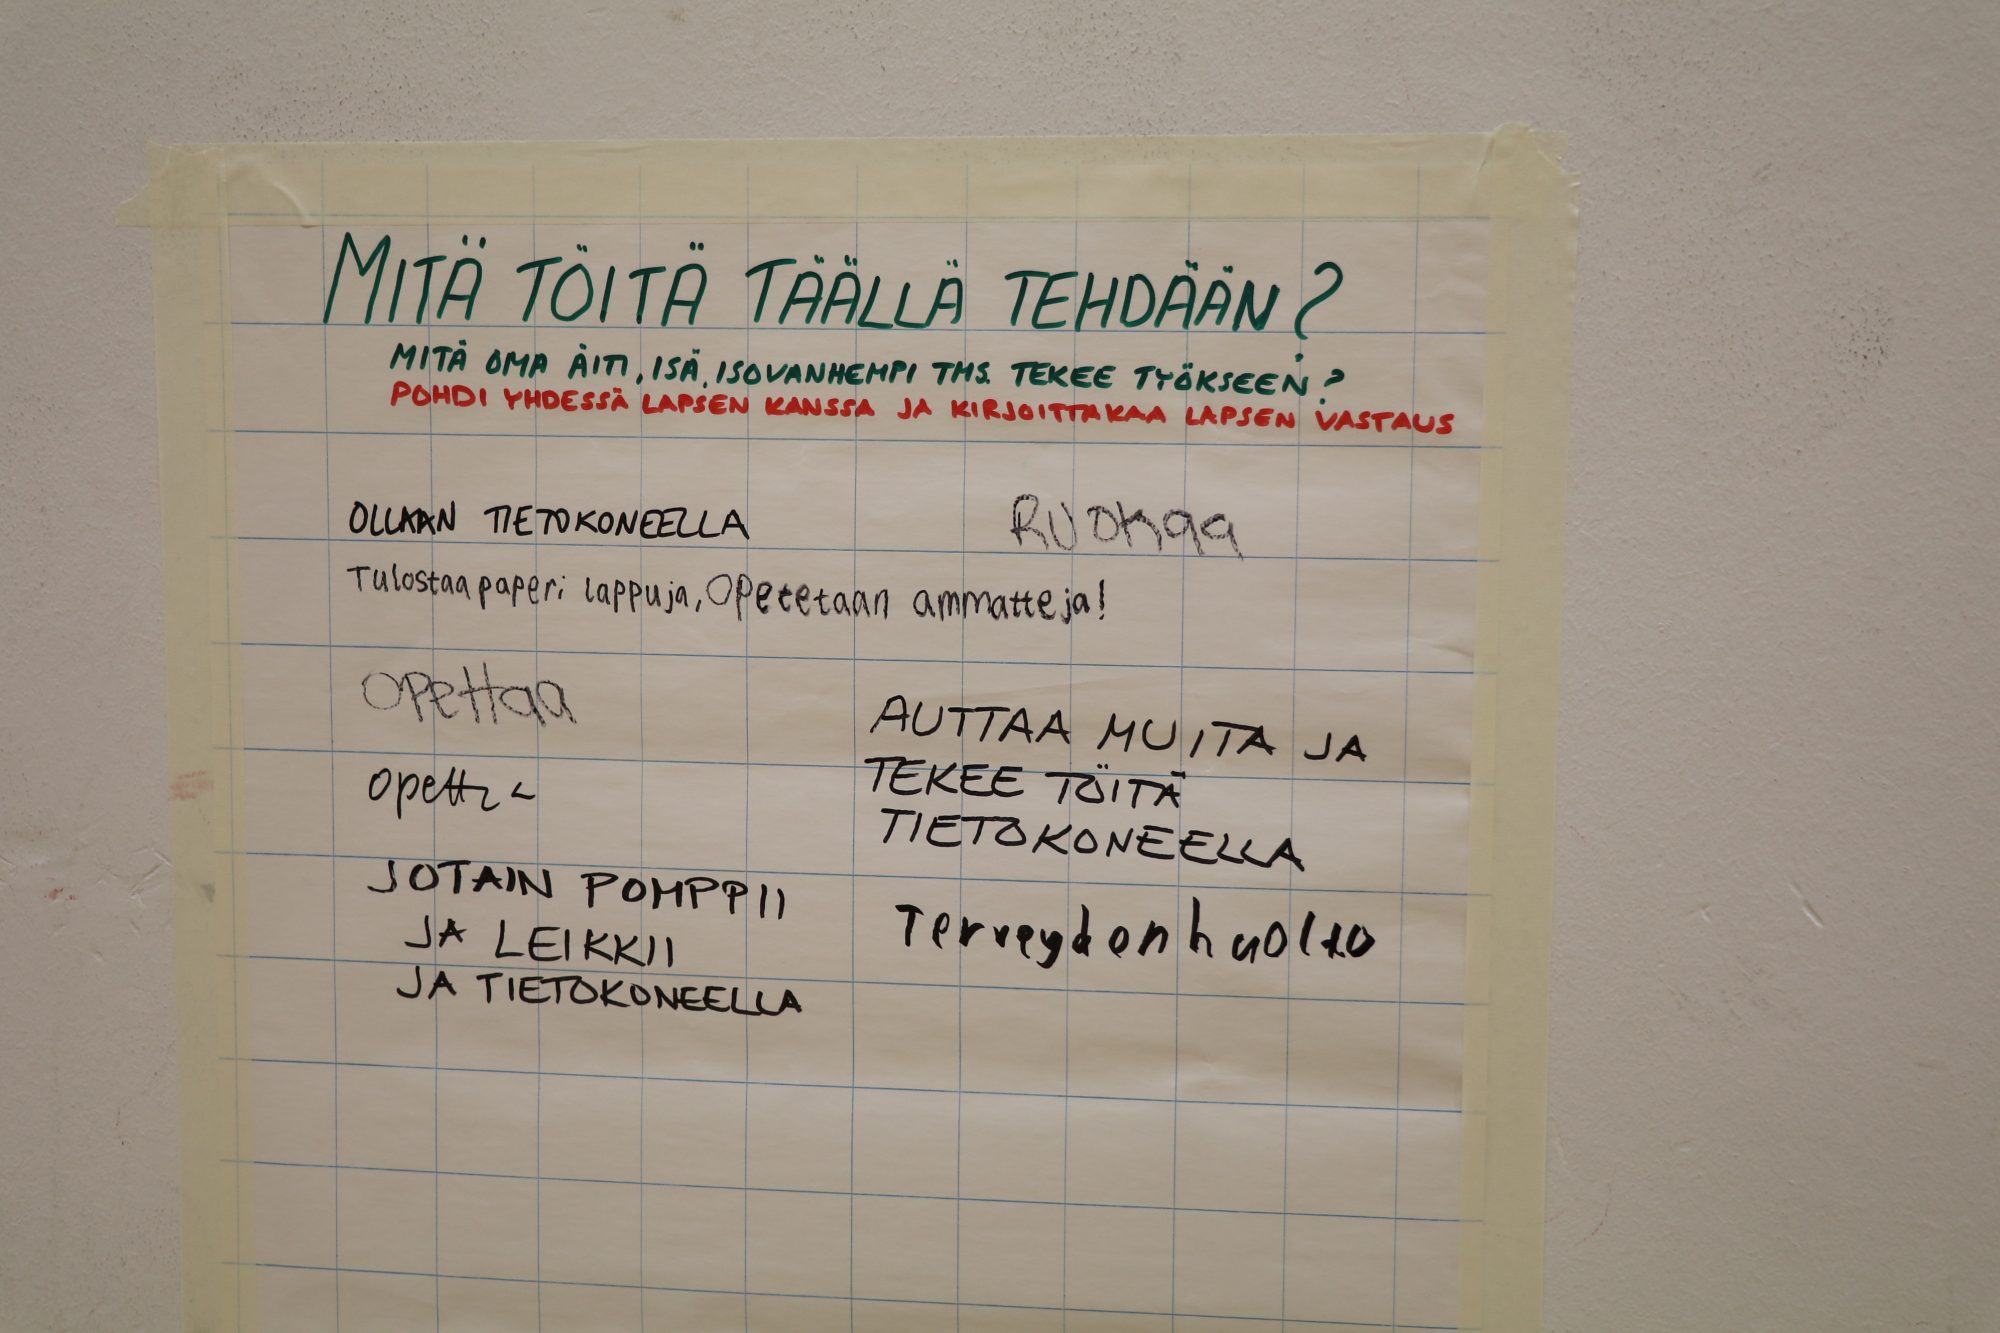 MITÄ TÖITÄ TÄÄLLÄ TEHDÄÄN?
MITÄ OMA ÄITI, ISÄ, ISOVANHEMPI TMS. TEKEE TYÖKSEEN?
POHDI YHDESSÄ LAPSEN KANSSA JA KIRJOITTAKAA LAPSEN VASTAUS
OLLAAN TIETOKONEELLA
RUOKaa
Tulostaa paperi lappuja, Opetetaan ammatteja!
OPettaa
opettaa
JOTAIN POMPPII
JA LEIKKII
JA TIETOKONEELLA
AUTTAA MUITA JA
TEKEE TÖITÄ
TIETOKONEELLA
Terveydenhuolto